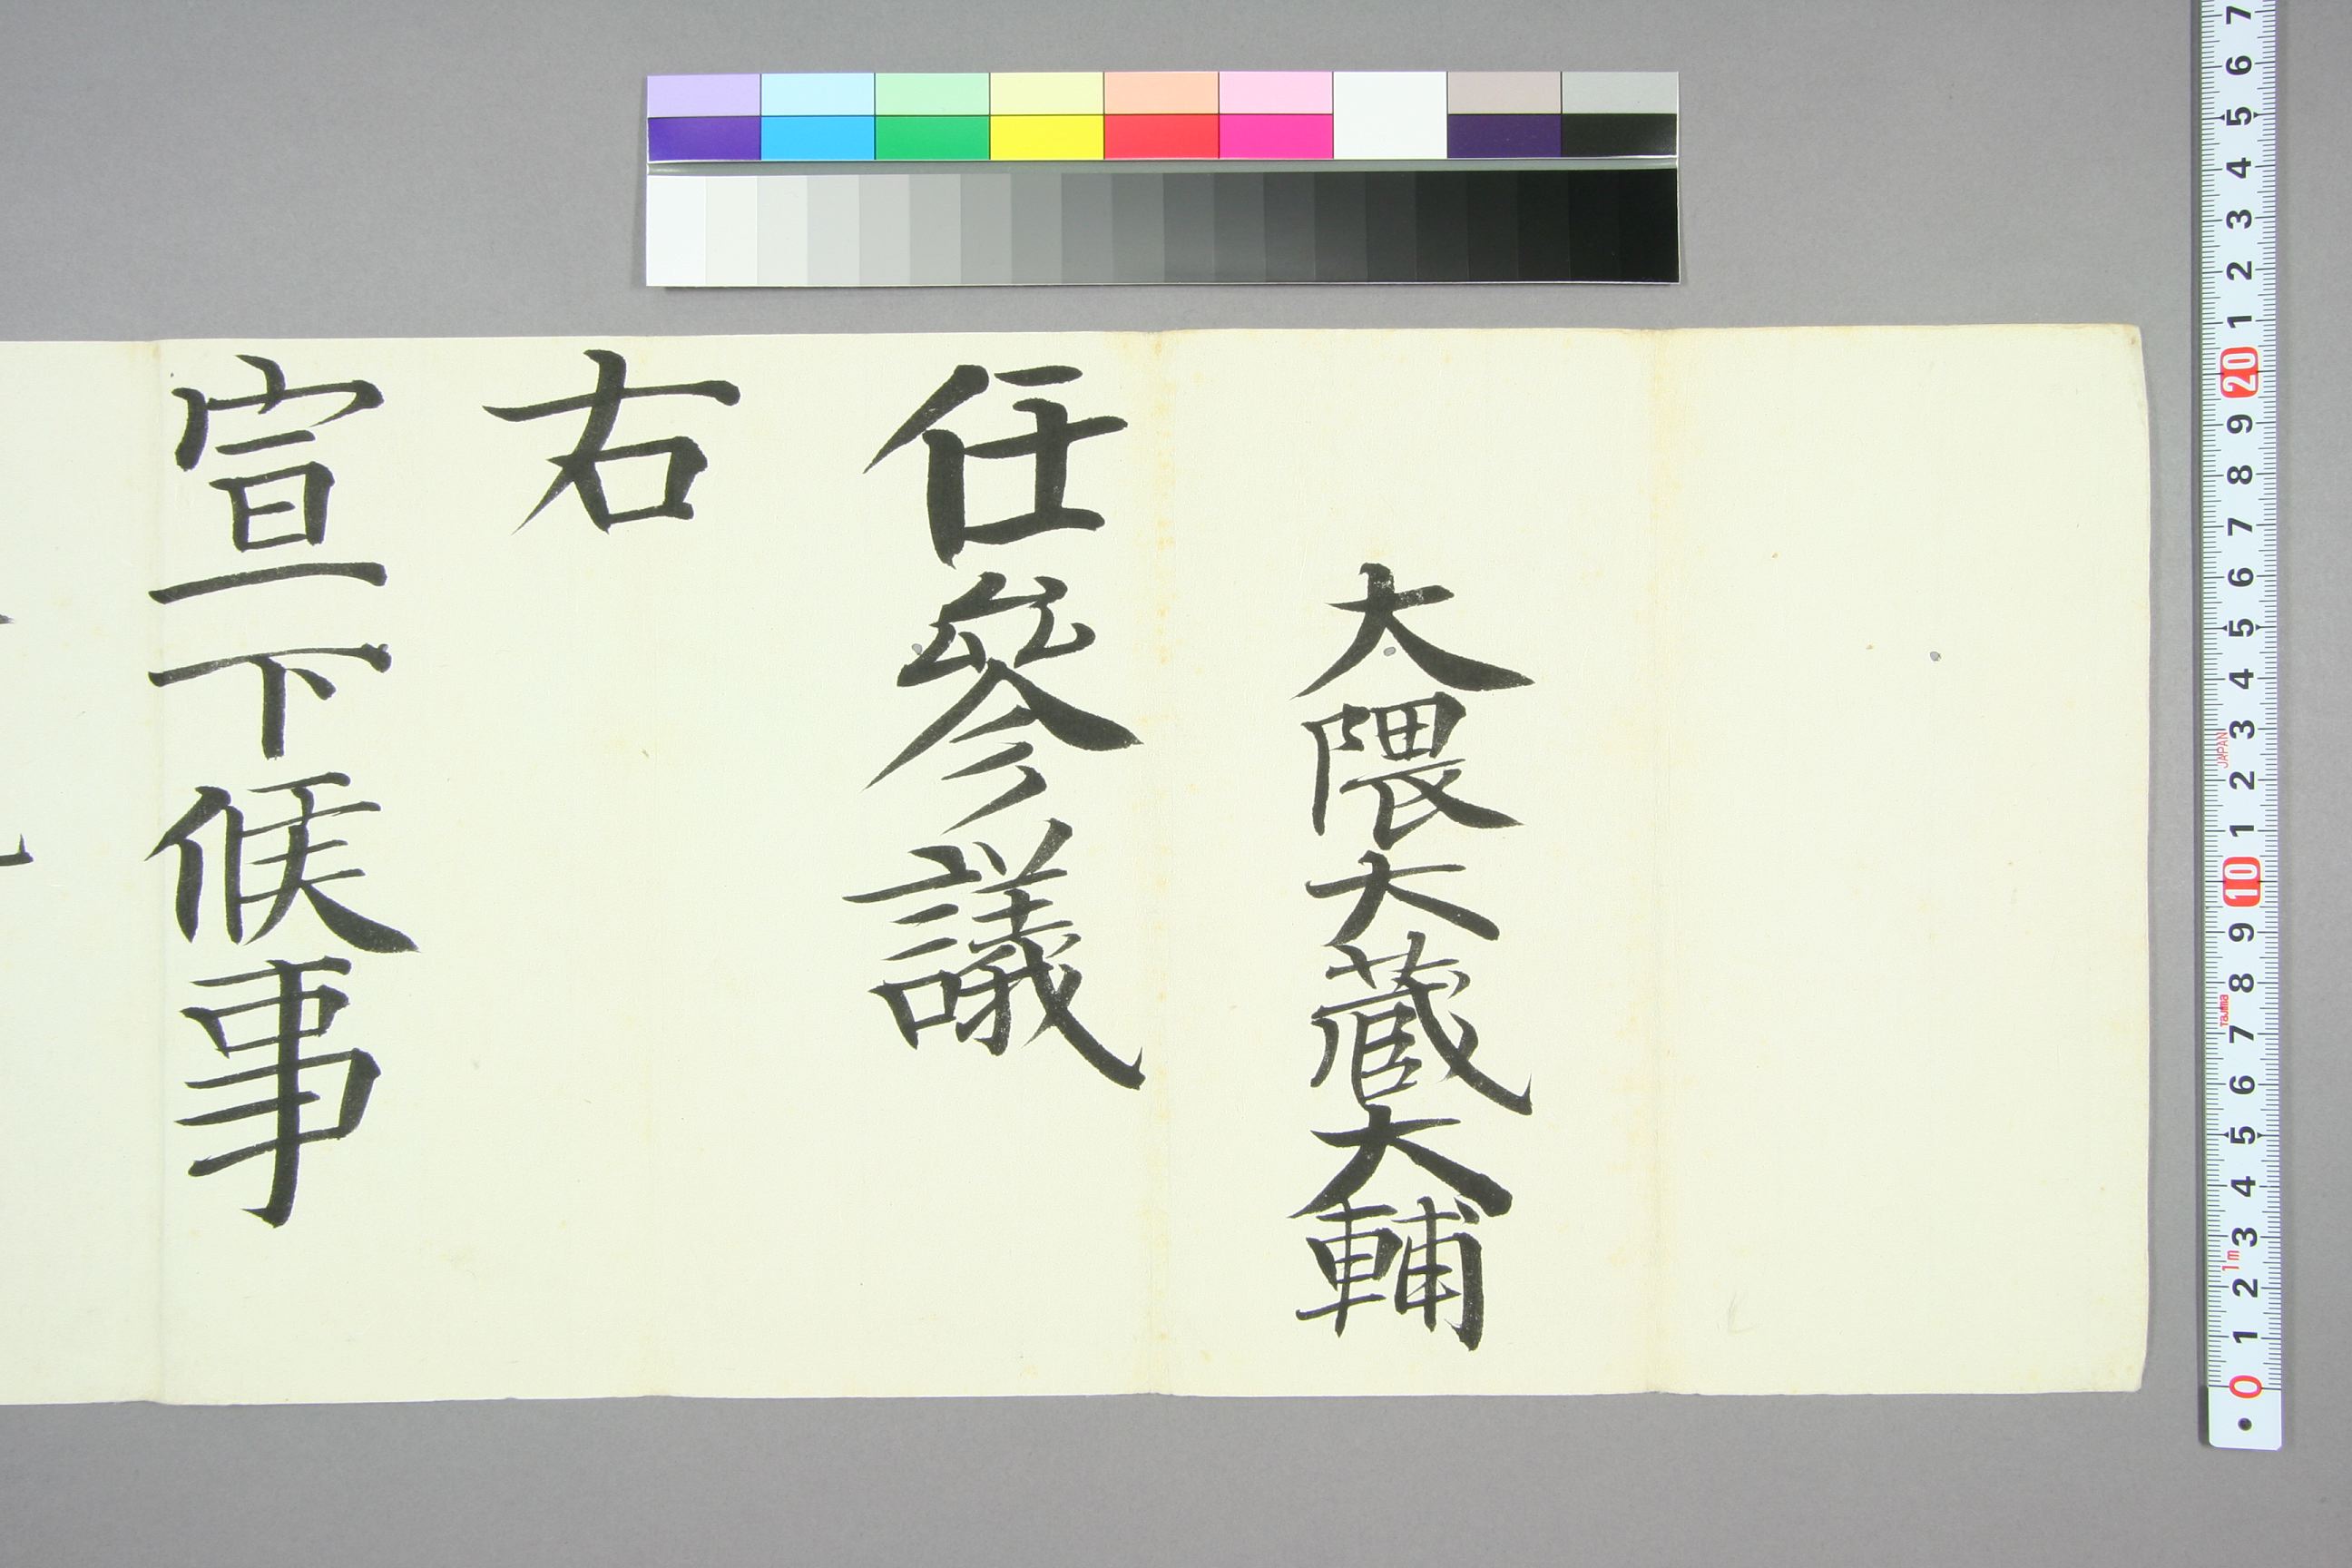 大隈大蔵大輔
任參議
右
宣下候事
7 6 5 4 3 2 1 20 9 8 7 6 5 4 3 2 1 10 9 8 7 6 5 4 3 2 1 0
JAPAN
Tajima
1m